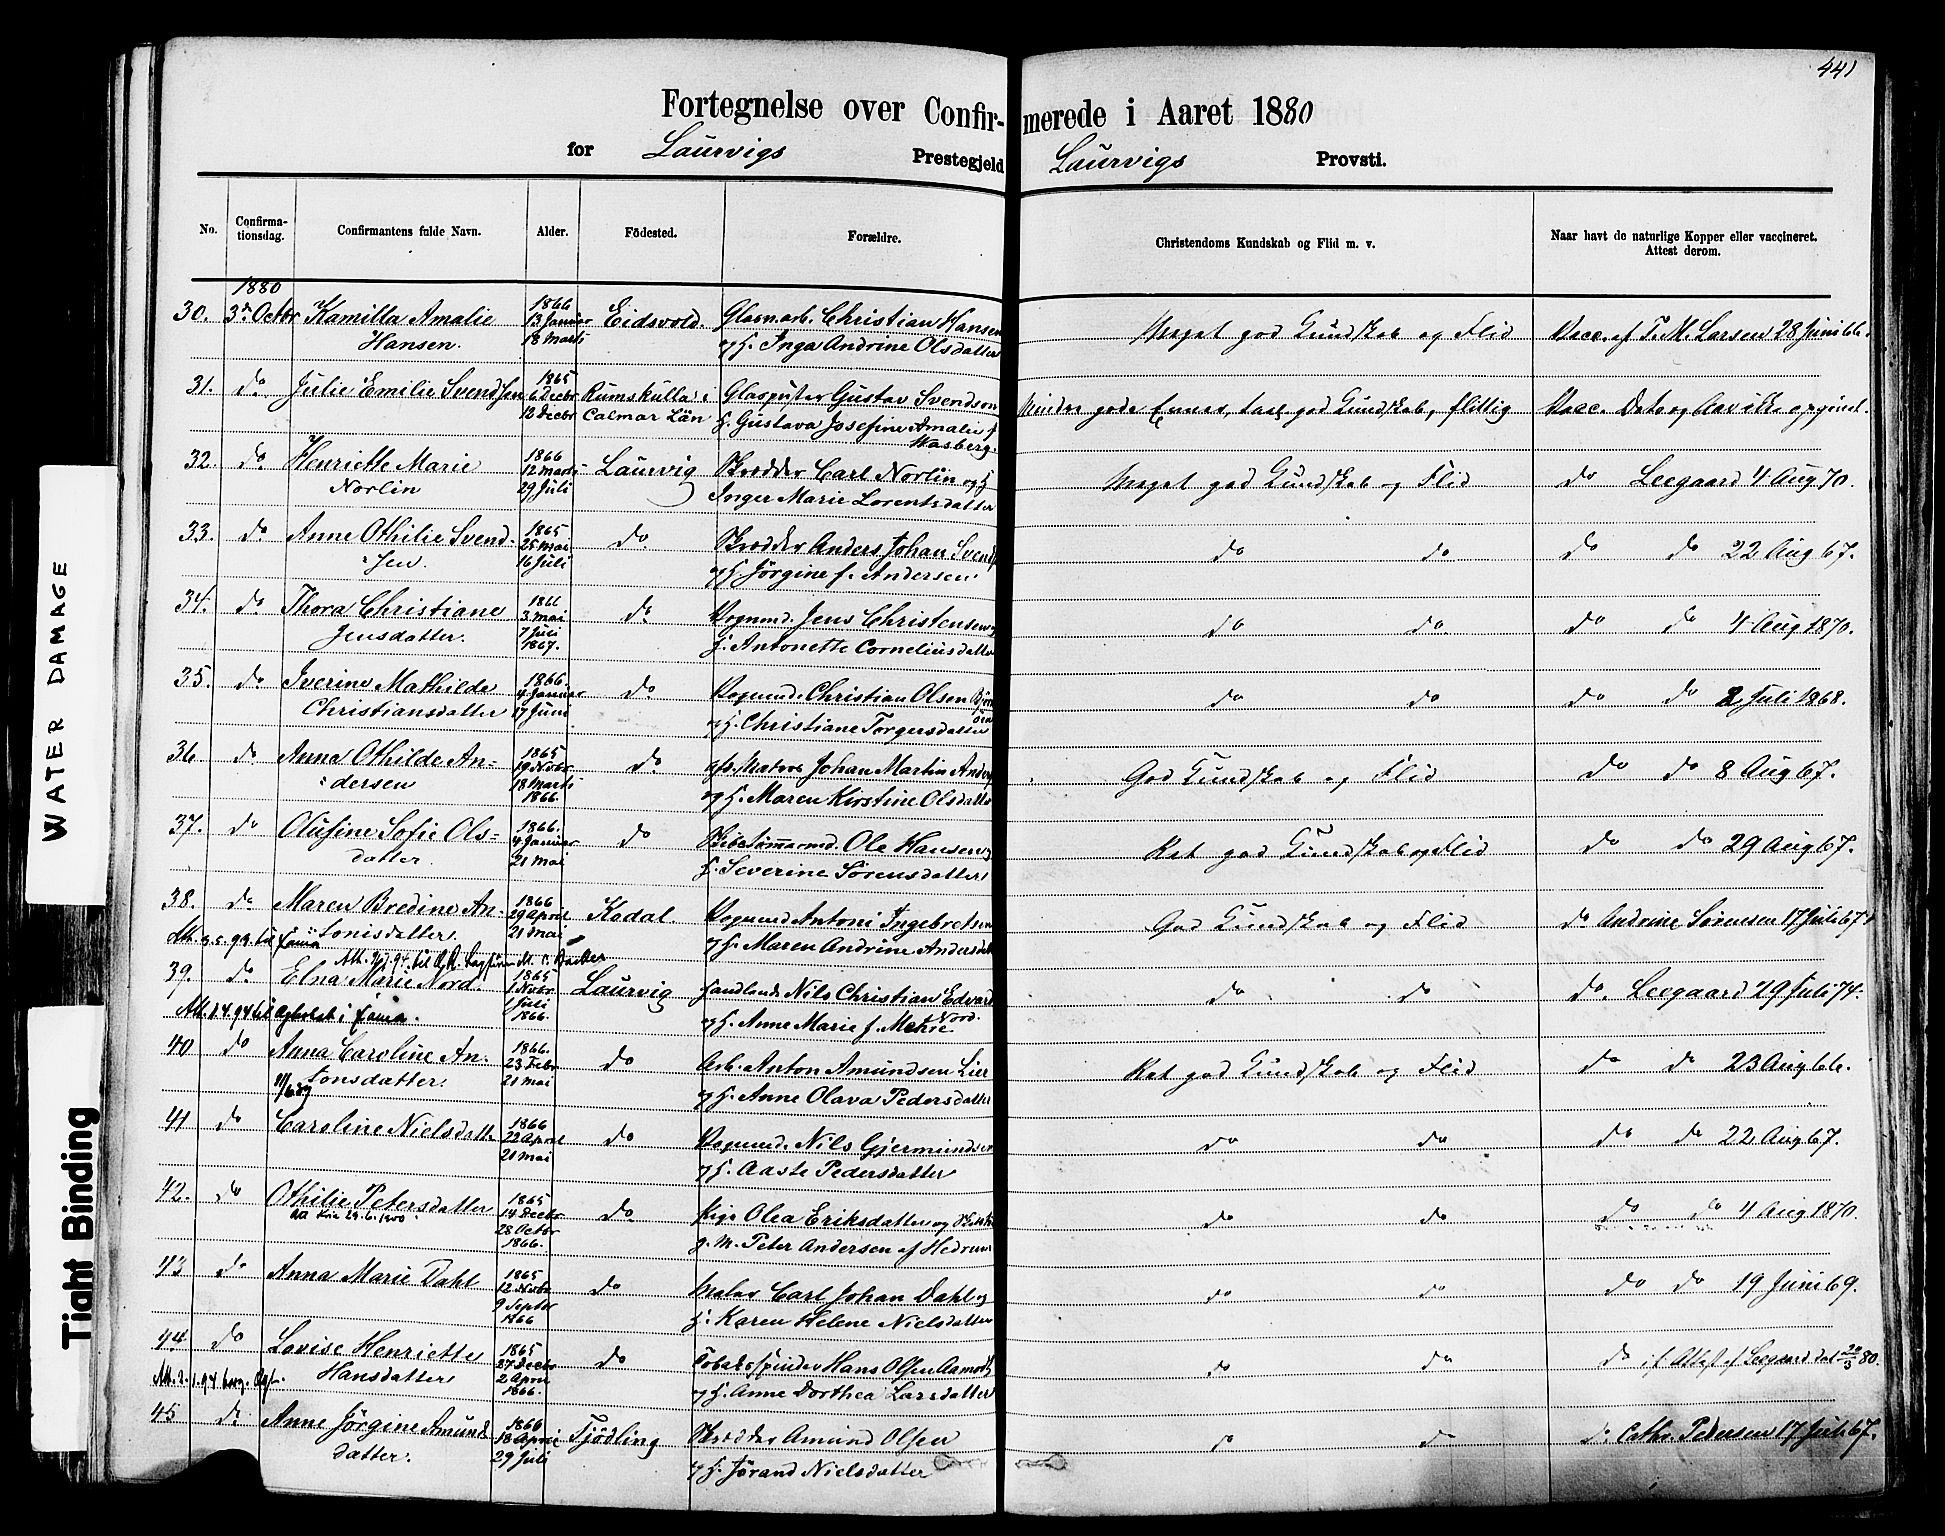 441
Fortegnelse over Confirmerede i Aaret 1880
for Laurvigs Prestegjeld Laurvigs Provsti.
No. Confirmationsdag. Confirmantens fulde Navn. Alder. Födested. Forældre. Christendoms Kundskab og Flid m. v. Naar havt de naturlige Kopper eller vaccineret. Attest derom.
1880
30. 3die Octbr Kamilla Amalie 1866 13 Januar 18 Marts Eidsvold. Glasm.arb. Christian Hansen Meget god Kundskab og Flid Vacc. af T. M. Larsen 28 Juni 66.
Hansen. og H. Inga Andrine Olsdatter
31. do Julie Emilie Svendsen 1865 6 Decbr 12 Decbr Rumskulla i Glaspuster Gustav Svendson Mindre gode Evner, taal. god Kundskab, flittig Vacc. Dato og Aar ikke opgivet.
Calmar Län H. Gustava Josefine Amalie f. Wasberg.
32. do Henriette Marie 1866 12 Marts 29 Juli Laurvig Skrædder Carl Norlin og H Meget god Kundskab og Flid do Leegaard 4 Aug 70.
Norlin Inger Marie Lorentsdatter
33. do Anne Othilie Svend- 1865 25 Mai 16 Juli do Skrædder Anders Johan Svends do do do do 22 Aug 67.
sen. og H. Jörgine f. Andersen
34. do Thora Christiane 1866 3 Mai 7 Juli 1867. do Vognmd. Jens Christensen og do do do do 4 Aug 1870.
Jensdatter. H. Antonette Corneliusdatter
35. do Iverine Mathilde 1866. 4 Januar 17 Juni do Vognmd. Christian Olsen do do do do 2 Juli 1868.
Christiansdatter og H. Christiane Torgersdatter
36. do Anna Othilde An- 1865 19 Novbr 18 Marts 1866. do afs. Matros Johan Martin Anders God Kundskab og Flid do do 8 Aug 67.
dersen og H. Maren Kirstine Olsdatter
37. do Olufine Sofie Ols- 1866. 4 Januar 21 Mai do Skibstømmermd. Ole Hansen og Ret god Kundskab og Flid do do 29 Aug 67.
datter. H. Severine Sörensdatter
38. do Maren Bredine An- 1866 29 April 21 Mai Kadal. Vognmd Antoni Ingebretsen God Kundskab og Flid do Andrine Sørensen 17 Juli 67.
tonisdatter. og H. Maren Andrine Andersdtr
39. do Elna Marie Nord. 1865 1 Novbr 1 Juli 1866. Laurvig Handlende Nils Christian Edvard Nord. do do do. Leegaard 29 Juli 74.
og H. Anne Marie f. Mehre
40 do Anna Caroline An- 1866. 23 Febr 21 Mai do Arb. Anton Amundsen Lier Ret god Kundskab og Flid do do 23 Aug 66.
tonsdatter. og H. Anne Olava Pedersdatter
41 do Caroline Nielsdatter 1866 22 April 21 Mai do Vognmd. Nils Gjermundsen do do do do 22 Aug 67.
og H. Aaste Pedersdatter
42. do Othilie Petersdatter 1865 14 Decbr 28 Octbr 1866. do Pige Olea Eriksdatter og do do do do 4 Aug 1870.
g. M. Peter Andersen af Hedrum
43 do Anna Marie Dahl 1865 12 Novbr 9 Septbr 1866 do Maler Carl Johan Dahl og do do do do 19 Juni 69.
H. Karen Helene Nielsdatter
44. do Lovise Henriette 1865 27 Decbr 2 April 1866. do Tobaksspinder Hans Olsen Aamodt do do do if. Attest af Leegaard dat. 20/3 80.
Hansdatter og H. Anne Dorthea Larsdatter
45 do Anne Jörgine Amunds 1866 18 April 29 Juli Tjödling Skrædder Amund Olsen do do do Cathr. Pedersen 17 Juli 67.
datter. og H. Jörand Nielsdatter
WATER DAMAGE
Tight Binding